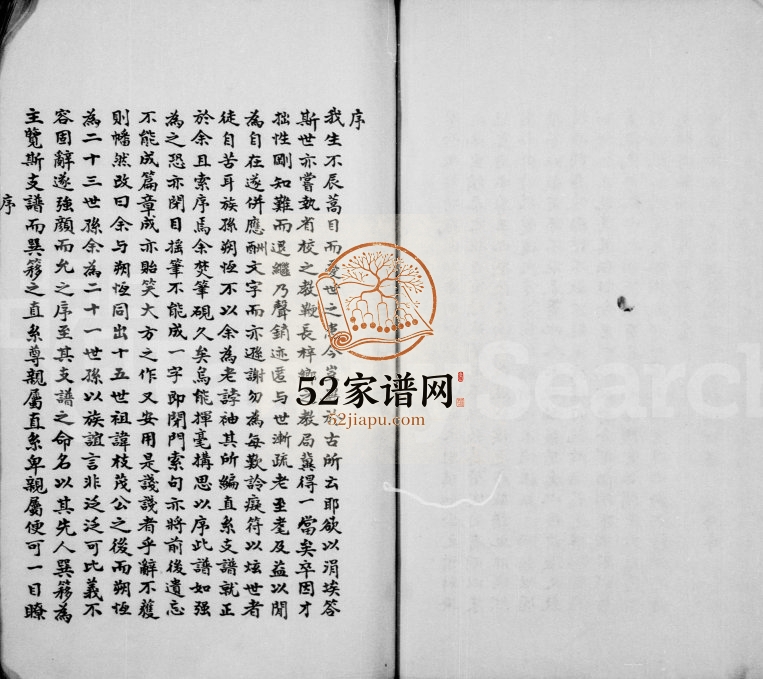 序
我生不辰蒿目而世之今古所云耶欲以涓埃答
斯世亦嘗執省校之教鞭長梓教局冀得一當矣卒因才
拙性剛知難而退繼乃聲銷迹匿与世漸疏老至耄及益以閒
為自在遂併應酬文字而亦遜謝勿為每歎詅癡符以炫世者
徒自苦耳族孫朔恆不以余為老誖袖其所編直系支譜就正
於余且索序焉余焚筆硯久矣烏能揮毫搆思以序此譜如强
為之恐亦閉目摇筆不能成一字即閉門索句亦將前後遺忘
不能成篇章成亦貽笑大方之作又安用是諓諓者乎辭不獲
則幡然改曰余与朔恆同出十五世祖諱枝茂公之後而朔恆
為二十三世孫余為二十一世孫以族誼言非泛泛可比義不
容固辭遂强顔而允之序至其支譜之命名以其先人巽簃為
主覽斯支譜而巽簃之直系尊親屬直系卑親屬便可一目瞭
序
52家谱网
52jiapu.com
Search